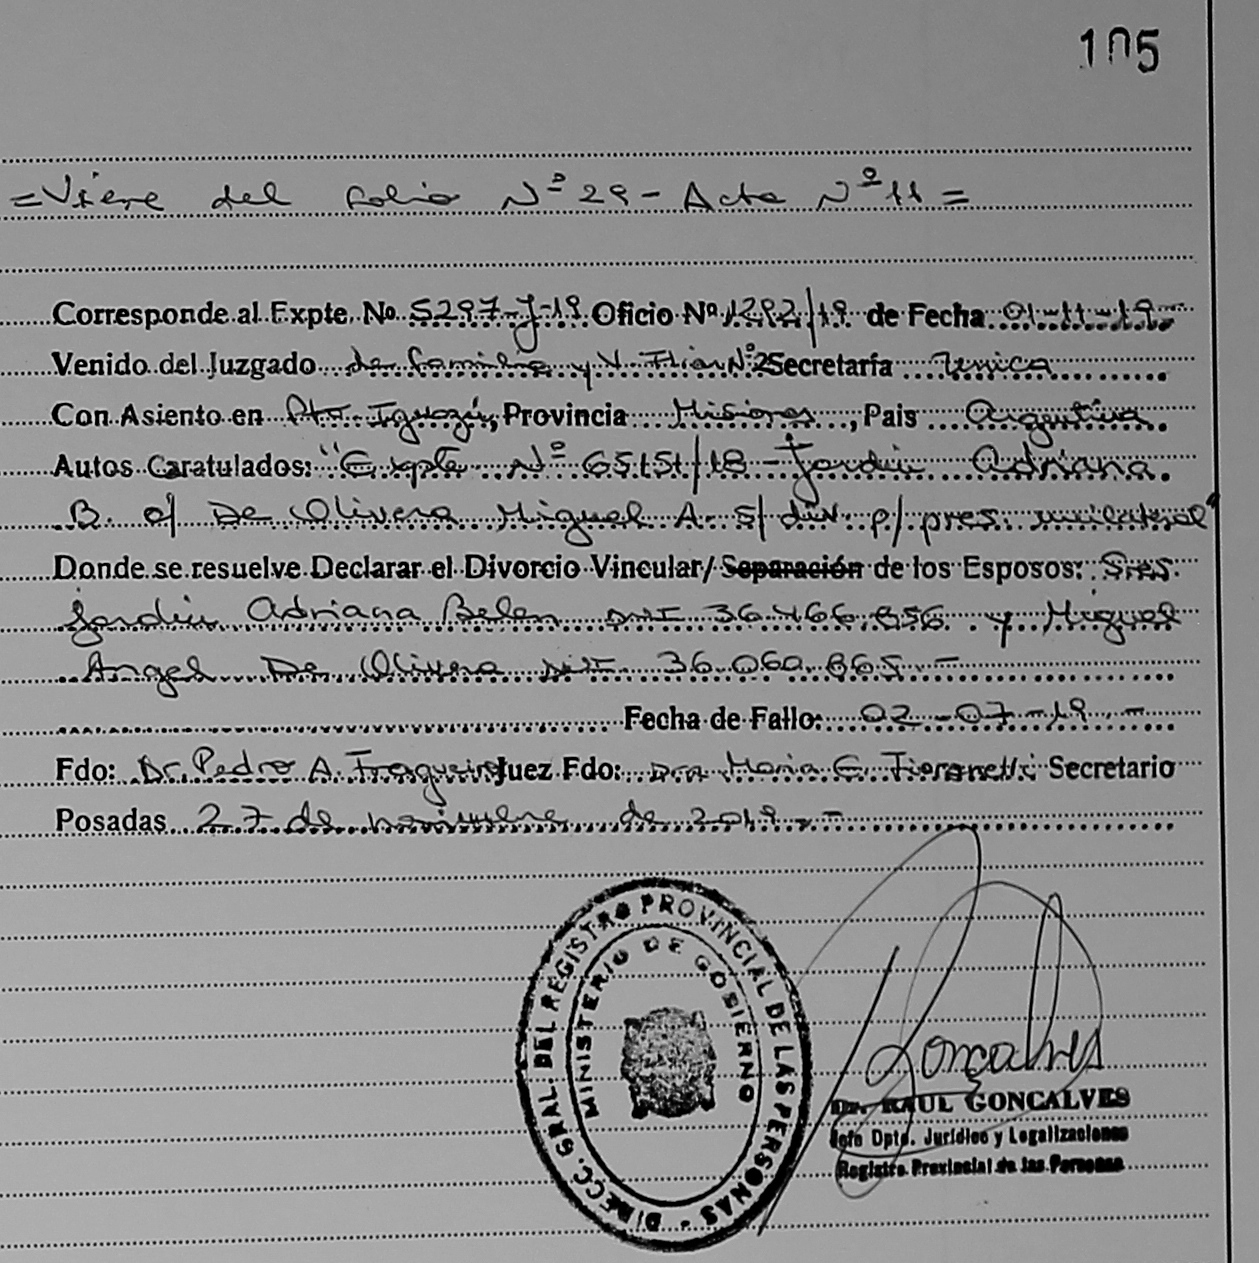 105
= Viene del folio Nº 29 - Acta Nº 11 =
Corresponde al Expte. No 5297-J-19 Oficio Nº 1292/19 de Fecha 01-11-19-
Venido del Juzgado de familia y V. Fliar Nº2 Secretaría Unica
Con Asiento en Pto. Iguazú, Provincia Misiones, Pais Argentina.
Autos Caratulados: "Expte Nº 65151/18 - Jordin Adriana.
B. c/ De Olivera Miguel A. s/ div. p/ pres. unilateral"
Donde se resuelve Declarar el Divorcio Vincular/ Separación de los Esposos: Sres.
Jordin Adriana Belen DNI 36.466.856 y Miguel
Angel De Olivera DNI 36.060.865.-
Fecha de Fallo: 02-07-19.-
Fdo: Dr. Pedro A. Fragueiro Juez Fdo: Dra Maria E. Secretario
Posadas 27 de noviembre de 2019.-
DIRECC. GRAL. DEL REGISTRO PROVINCIAL DE LAS PERSONAS -
MINISTERIO DE GOBIERNO
Goncalves
Dr. RAUL GONCALVES
Jefe Dpto. Jurídico y Legalizaciones
Registro Provincial de las Personas